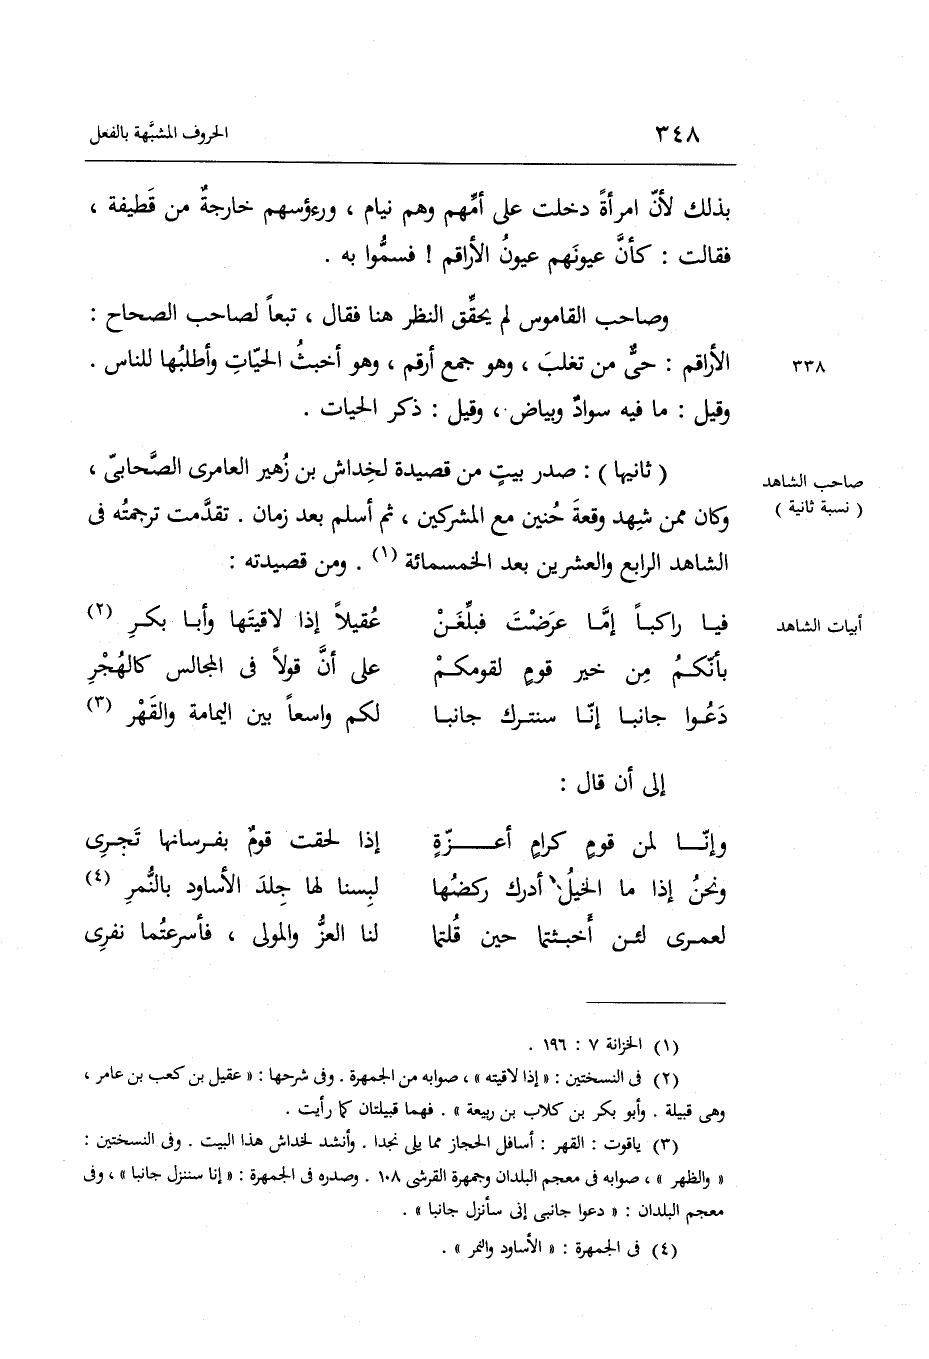 ٣٤٨ الحروف المشبَّهة بالفعل
بذلك لأنّ امرأةً دخلت على أمِّهم وهم نيام ، ورءؤسهم خارجةٌ من قَطيفة ،
فقالت : كأنَّ عيونَهم عيونُ الأراقم ! فسمُّوا به .
وصاحب القاموس لم يحقِّق النظر هنا فقال ، تبعاً لصاحب الصحاح :
الأراقم : حىٌّ من تغلبَ ، وهو جمع أرقم ، وهو أخبثُ الحيّاتِ وأطلبُها للناس .
٣٣٨
وقيل : ما فيه سوادٌ وبياض ، وقيل : ذكر الحيات .
( ثانيها ) : صدر بيتٍ من قصيدة لخِداش بن زُهير العامرى الصَّحابىّ ،
صاحب الشاهد
( نسبة ثانية )
وكان ممن شهِد وقعةَ حُنين مع المشركين ، ثم أسلم بعد زمان . تقدَّمت ترجمتُه فى
الشاهد الرابع والعشرين بعد الخمسمائة (١) . ومن قصيدته :
أبيات الشاهد
فيا راكباً إمَّا عرَضْتَ فبلِّغَنْ عُقيلاً إذا لاقيتَها وأبا بكرِ (٢)
بأنّكمُ مِن خير قومٍ لقومكمْ على أنَّ قولاً فى المجالس كالهُجْرِ
دَعُوا جانبا إنّا سنترك جانبا لكم واسعاً بين اليمامة والقَهْر (٣)
إلى أن قال :
وإنّا لمن قومٍ كرامٍ أعزّةٍ إذا لحقت قومٌ بفرسانها تَجرِى
ونحنُ إذا ما الخيلُ أدرك ركضُها لبِسنا لها جِلدَ الأساود بالنُّمرِ (٤)
لعمرى لئن أَخبثتما حين قُلتما لنا العزُّ والمولى ، فأسرعتُما نفرِى
(١) الخزانة ٧ : ١٩٦ .
(٢) فى النسختين : « إذا لاقيته » ، صوابه من الجمهرة . وفى شرحها : « عقيل بن كعب بن عامر ،
وهى قبيلة . وأبو بكر بن كلاب بن ربيعة » . فهما قبيلتان كما رأيت .
(٣) ياقوت : القهر : أسافل الحجاز مما يلى نجدا . وأنشد لخداش هذا البيت . وفى النسختين :
« والظهر » ، صوابه فى معجم البلدان وجمهرة القرشى ١٠٨ . وصدره فى الجمهرة : « إنا سننزل جانبا » ، وفى
معجم البلدان : « دعوا جانبى إنى سأنزل جانبا » .
(٤) فى الجمهرة : « الأساود والنمر » .